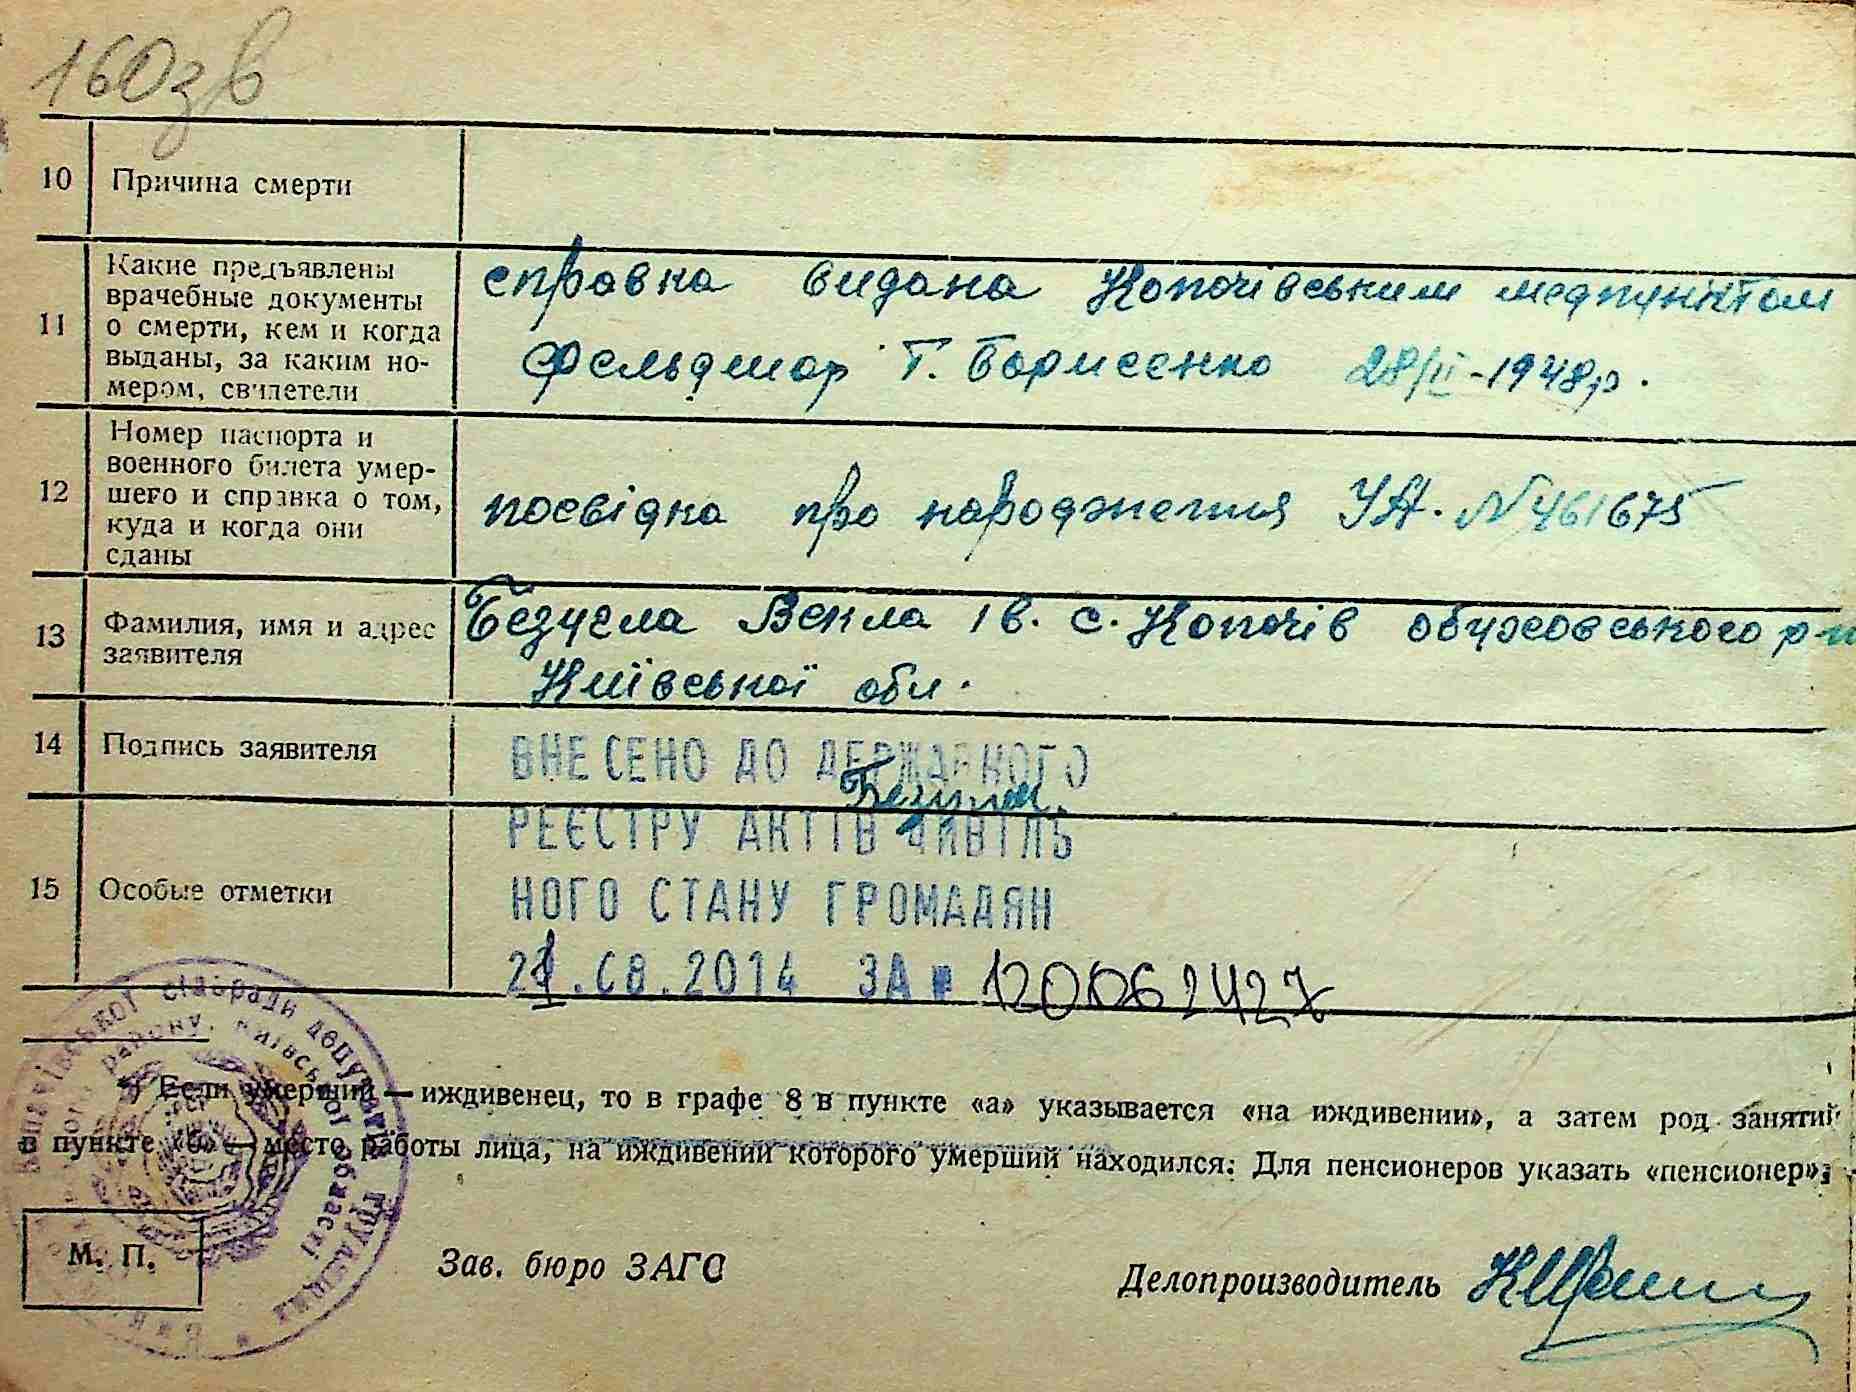 160зв
10 Причина смерти
11 Какие предъявлены врачебные документы о смерти, кем и когда выданы, за каким номером, свидетели
справка видана Копочівським медпунктом
Фельдшар Т. Борисенко 28/II-1948р.
12 Номер паспорта и военного билета умершего и справка о том, куда и когда они сданы
посвідка про народження УА. N 461675
13 Фамилия, имя и адрес заявителя
Безугла Векла Ів. с. Копочів обуховського р-н
Київської обл.
14 Подпись заявителя
ВНЕСЕНО ДО ДЕРЖАВНОГО
РЕЄСТРУ АКТІВ ЦИВІЛЬ
15 Особые отметки
НОГО СТАНУ ГРОМАДЯН
21.08.2014 ЗА № 120062427
*) Если умерший — иждивенец, то в графе 8 в пункте «а» указывается «на иждивении», а затем род занятий
в пункте «б» — место работы лица, на иждивении которого умерший находился. Для пенсионеров указать «пенсионер»
М. П.
Зав. бюро ЗАГС
Делопроизводитель